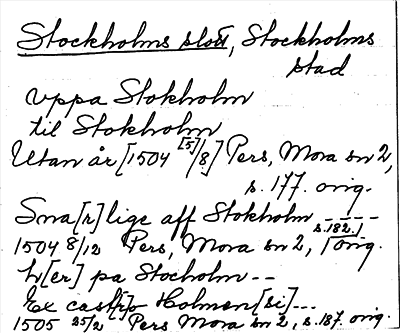 Stockholms slott, Stockholms
stad
uppa Stokholm
til Stokholm
Utan år [1504 [5]/8] Pers, Mora sn 2,
s. 177. orig.
Sma[r]lige aff Stokholm -----
1504 8/12 Pers, Mora sn 2, s. 182. orig.
h[er] pa Stocholm --
Ex cast[r]o Holmen [si] ---
1505 25/2 Pers Mora sn 2, s. 187. orig.